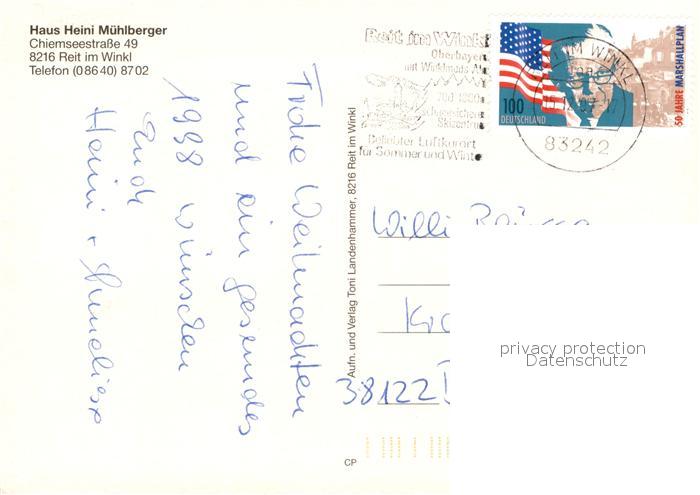 Haus Heini Mühlberger
Chiemseestraße 49
8216 Reit im Winkl
Telefon (08640) 8702
Frohe Weihnachten
und ein gesundes
1998 wünschen
Euch
Heini + Anneliese
Aufn. und Verlag Toni Landenhammer, 8216 Reit im Winkl
CP
Reit im Winkl
Oberbayern
mit Winklmoos Alm
700-1800
Skizentrum
Beliebter Luftkurort
für Sommer und Winter
100
DEUTSCHLAND
50 JAHRE MARSHALLPLAN
REIT IM WINKL
83242
Willi
38122
privacy protection
Datenschutz